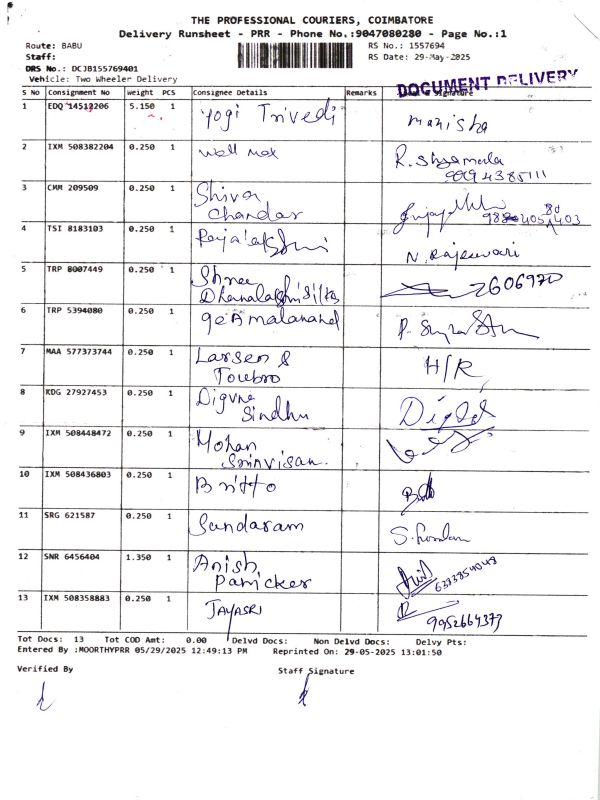 THE PROFESSIONAL COURIERS, COIMBATORE
Delivery Runsheet - PRR - Phone No.:9047080280 - Page No.:1
Route: BABU RS No.: 1557694
Staff: RS Date: 29-May-2025
DRS No.: DCJB155769401
Vehicle: Two Wheeler Delivery
DOCUMENT DELIVERY
S No Consignment No Weight PCS Consignee Details Remarks Signature
1 EDQ 14512206 5.150 1 Yogi Trivedi Manisha
2 IXM 508382204 0.250 1 Wall Max R. Shyamala
9994385111
3 CMM 209509 0.250 1 Shiva
Chandar
4 TSI 8183103 0.250 1 Rajalakshmi N. Rajeswari
5 TRP 8007449 0.250 1 Shree
Dhanalakshmi Silks 2606970
6 TRP 5394080 0.250 1 geAmalanand
7 MAA 577373744 0.250 1 Larsen &
Toubro H/R
8 KDG 27927453 0.250 1 Digvne
Sindhu
9 IXM 508448472 0.250 1 Mohan
Srinvisan.
10 IXM 508436803 0.250 1 Britto
11 SRG 621587 0.250 1 Sundaram
12 SNR 6456404 1.350 1 Anish
Panicker 6373854048
13 IXM 508358883 0.250 1 JAYASRI 9952664373
Tot Docs: 13 Tot COD Amt: 0.00 Delvd Docs: Non Delvd Docs: Delvy Pts:
Entered By :MOORTHYPRR 05/29/2025 12:49:13 PM Reprinted On: 29-05-2025 13:01:50
Verified By Staff Signature